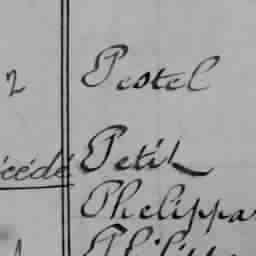 2 Postel
écédé Petit
Phelippa